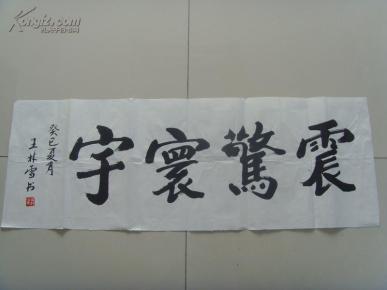 震驚寰宇
癸巳夏月
王林雪书
Kongfz.com
孔夫子旧书网